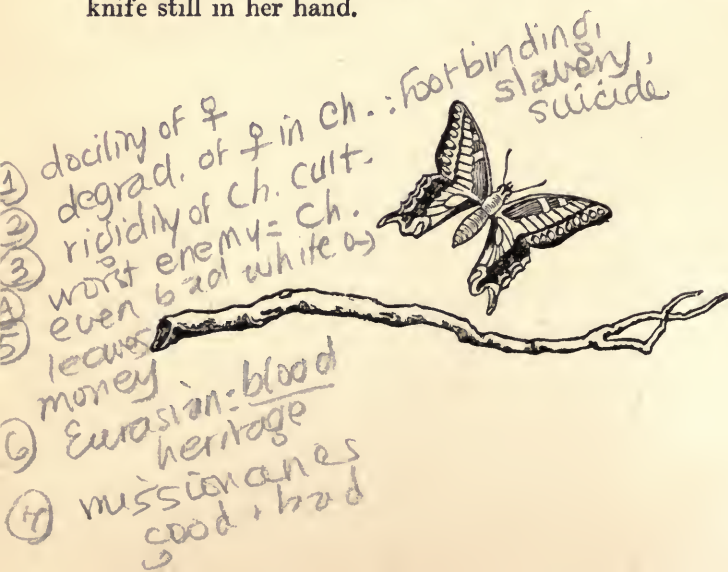 knife still in her hand.
① docility of ♀
② degrad. of ♀ in Ch.: Footbinding,
slavery,
suicide
③ rigidity of Ch. cult.
④ worst enemy = Ch.
⑤ even bad white
leaves
money
⑥ Eurasian: blood
heritage
⑦ missionaries
good + bad